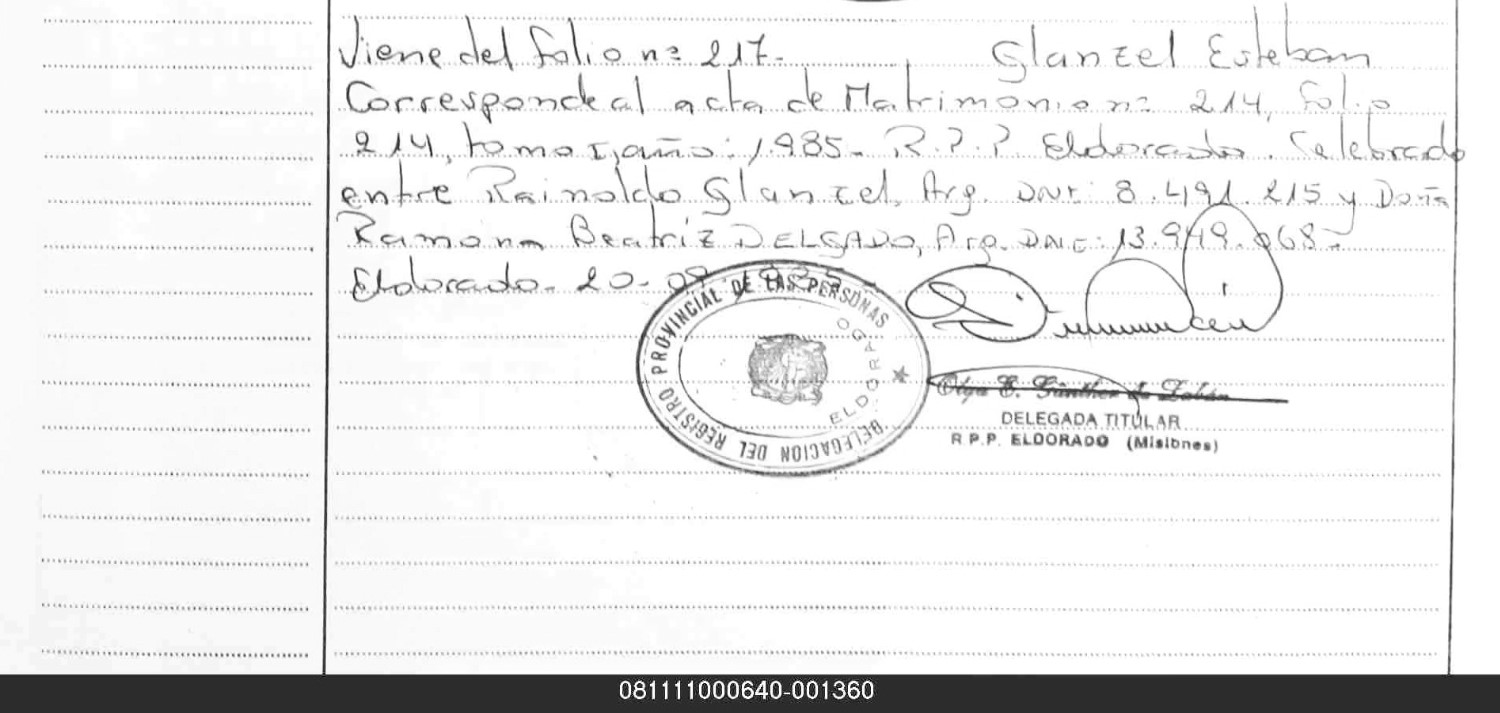 Viene del folio nº 217- Glanzel Esteban
Corresponde al acta de Matrimonio nº 214, folio
214, tomo I, año: 1985- R.P.P. Eldorado. Celebrado
entre Rainoldo Glanzel, Arg. DNI: 8.491.215 y Doña
Ramona Beatriz DELGADO, Arg. DNI: 13.949.068-
Eldorado- 20-09
DELEGACION DEL REGISTRO PROVINCIAL DE LAS PERSONAS
ELDORADO
Olga E. Günther de Zabán
DELEGADA TITULAR
R.P.P. ELDORADO (Misiones)
081111000640-001360